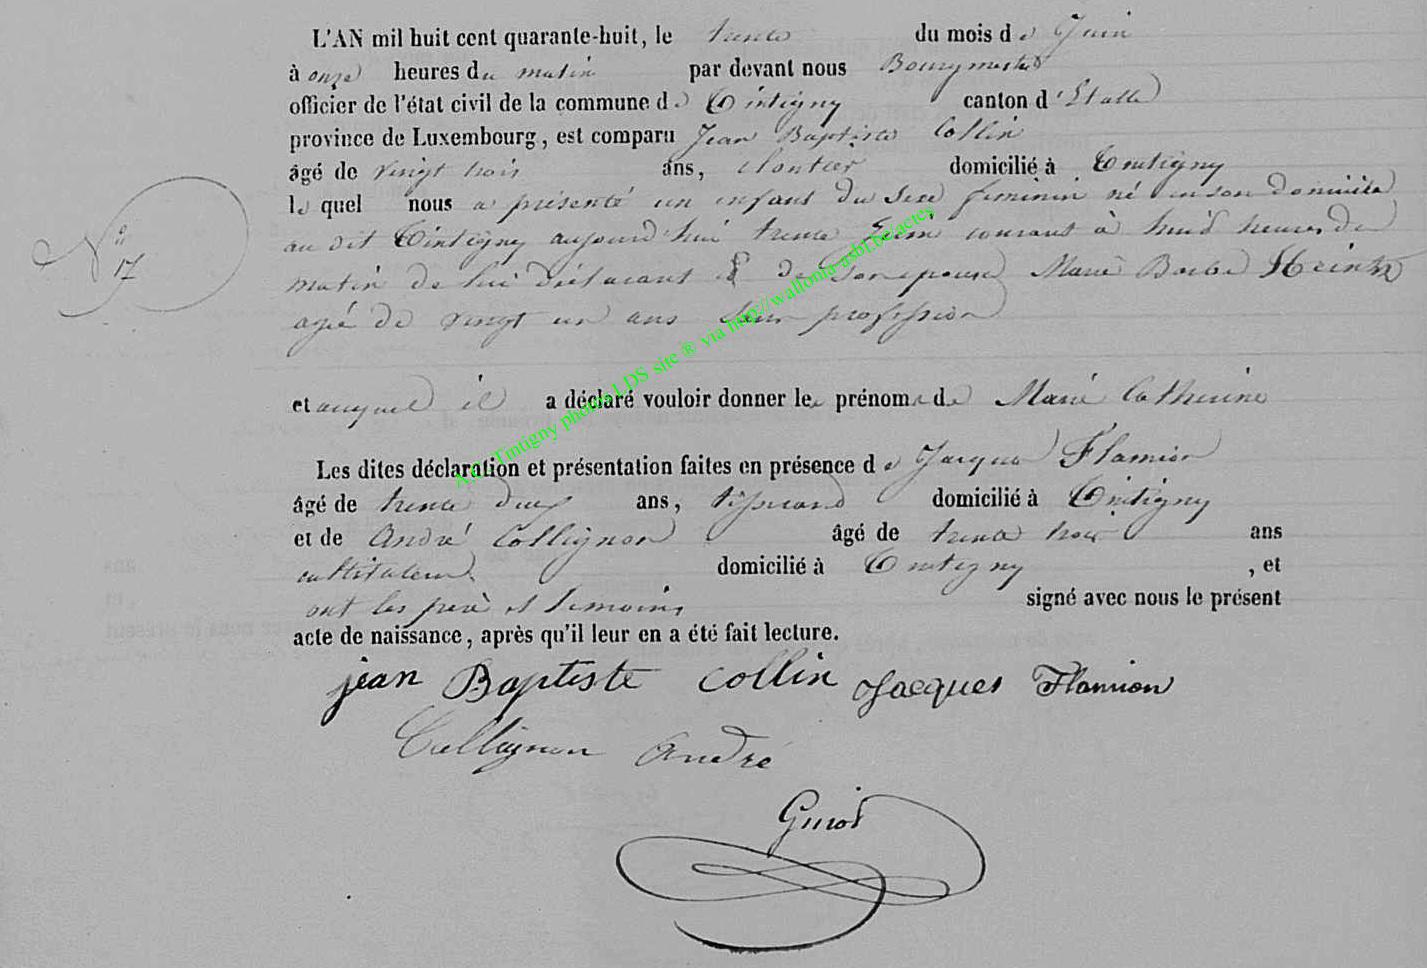 L'AN mil huit cent quarante-huit, le trente du mois de Juin
à onze heures du matin par devant nous Bourgmestre
officier de l'état civil de la commune de Tintigny canton d'Etalle
province de Luxembourg, est comparu Jean Baptiste Collin
âgé de vingt trois ans, cloutier domicilié à Tintigny
le quel nous a présenté un enfant du sexe feminin né en son domicile
au dit Tintigny aujourd'hui trente Juin courant à huit heures du
matin de lui déclarant & de son epouse Marie Barbe Heintz
agée de vingt un ans sans profession
N° 17
et auquel il a déclaré vouloir donner les prénoms de Marie Catherine
Les dites déclaration et présentation faites en présence de Jacques Flamion
âgé de trente deux ans, tisserand domicilié à Tintigny
et de André Collignon âgé de trente trois ans
cultivateur domicilié à Tintigny, et
ont les père et temoins signé avec nous le présent
acte de naissance, après qu'il leur en a été fait lecture.
jean Baptiste collin Jacques Flamion
Collignon André
Guiot
Tintigny photos LDS site ® via http://wallonia-asbl.be/actes